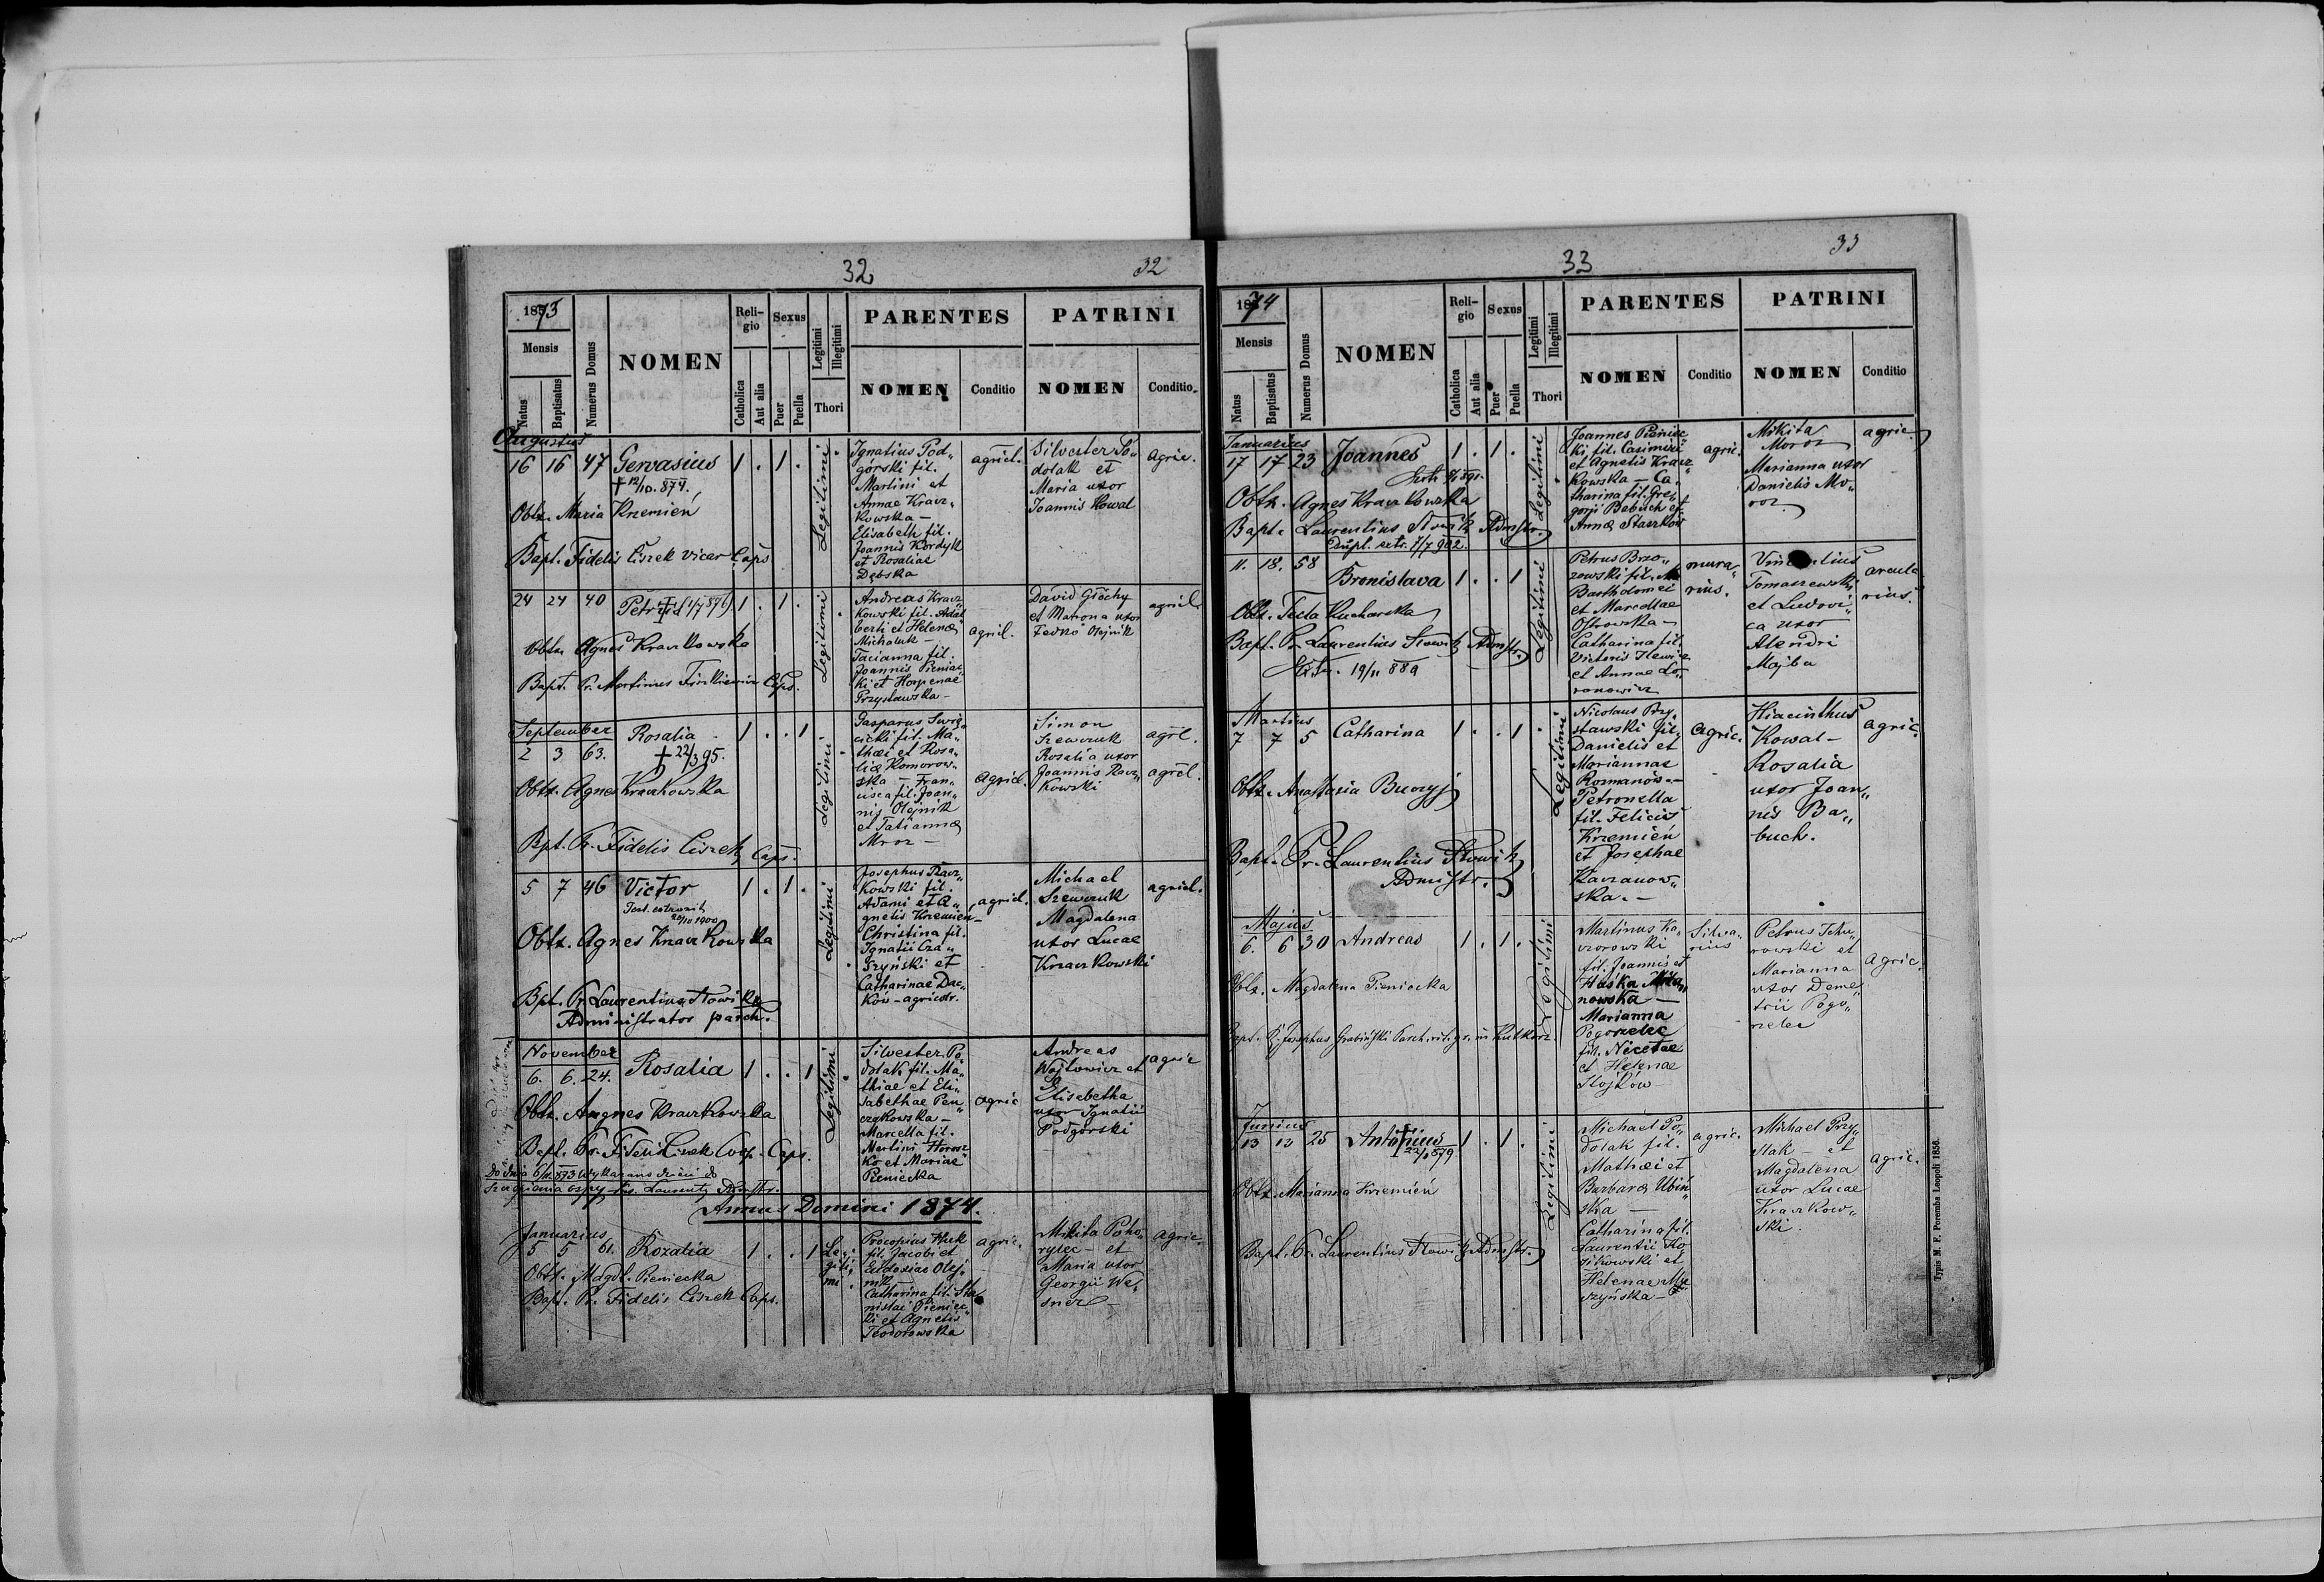 32
32
1873
Mensis
Natus
Baptisatus
Numerus Domus
NOMEN
Reli-
gio
Catholica
Aut alia
Sexus
Puer
Puella
Legitimi
Illegitimi
Thori
PARENTES
NOMEN
Conditio
PATRINI
NOMEN
Conditio
Augustus
16 16 47 Gervasius 1 . 1 .
† 12/10. 874.
Obtx. Maria Krzemień
Bapt. Fidelis Ciszek vicar Caps
Legitimi
Ignatius Pod„
górski fil.
Martini et
Annae Kracz„
kowska —
Elisabeth fil.
Joannis Kordyk
et Rosaliae
Dębska
agricl.
Silvester Po„
dolak et
Maria uxor
Joannis Kowal
agric.
24 24 40 Petrus 1 . 1 .
Obtx. Agnes Kraczkowska
Bapt. Pr. Martinus Caps.
Legitimi
Andreas Kracz„
kowski fil. Adal„
berti et Helenæ
Michaluk —
Tacianna fil.
Joannis Pieniac„
ki et Horpenae
Przysławska —
agricl.
David Grochy
et Matrona uxor
Fedko Olejnik
agricl.
September
2 3 63. Rosalia 1 . . 1
† 22/3 95.
Obtx. Agnes Kraczkowska
Bpt. Pr. Fidelis Ciszek Caps.
Legitimi
Gasparus Swię„
cicki fil. Ma„
thæi et Rosa„
liæ Komorow„
ska — Fran„
cisca fil. Joan„
nis Olejnik
et Tatiannæ
Mroz —
agricl.
Simon
Szewczuk
Rosalia uxor
Joannis Kracz„
kowski
agrl.
agrcl.
5 7 46 Victor 1 . 1 .
20/10 1900
Obtx. Agnes Kraczkowska
Bpt. Pr. Laurentius Słowik
Administrator paroch.
Legitimi
Josephus Kracz„
kowski fil.
Adami et A„
gnetis Krzemień —
Christina fil.
Ignatii Cza„
szyński et
Catharinae Dac„
ków — agricolr.
agricl.
Michael
Szewczuk
Magdalena
uxor Lucae
Kraczkowski
agricl.
November
6. 6. 24. Rosalia 1 . . 1
Obtx. Angnes Kraczkowska
Bapt. Pr. Fidelis Ciszek Coop. Caps.
Legitimi
Silvester Po„
dolak fil. Ma„
thiae et Eli„
sabethae Pen„
czykowska —
Marcella fil.
Martini Horosz„
ko et Mariae
Pieniecka
agric
Andreas
Wojtowicz et
Elisebetha
uxor Ignatii
Podgórski
agric
Do dnia 6/11. 873 wykazano dzieci do
szczepienia ospy
Annus Domini 1874.
Januarius
5 5 61. Rozalia 1 . . 1
Obtx. Magdl. Pieniecka
Bapt. Pr. Fidelis Ciszek Caps.
Le„
giti„
mi.
Procopius
fil. Jacobi et
Eudoxiae Olej„
nik —
Catharina fil. Sta„
nislai Pieniec„
ki et Agnetis
Teodorowska
agric.
Mikita Poho„
rylec — et
Maria uxor
Georgii We„
sner —
agric.
33
33
1874
Mensis
Natus
Baptisatus
Numerus Domus
NOMEN
Reli-
gio
Catholica
Aut alia
Sexus
Puer
Puella
Legitimi
Illegitimi
Thori
PARENTES
NOMEN
Conditio
PATRINI
NOMEN
Conditio
Januarius
17 17 23 Joannes 1 . 1 .
Obtx. Agnes Kraczkowska
Bapt. Laurentius Słowik Admstr.
Dupl. extr. 7/7 902.
Legitimi
Joannes Pieniec„
ki fil. Casimiri
et Agnetis Kracz„
kowska — Ca„
tharina fil. Gre„
gorji Babuch et
Annæ Staszków
agric.
Mikita
Moroz
Marianna uxor
Danielis Mo„
roz.
agric.
11. 18. 58 Bronislava 1 . . 1
Obtx. Tecla Kucharska
Bapt. Pr. Laurentius Słowik Admstr.
19/11 889
Legitimi
Petrus Brzo„
zowski fil.
Bartholomei
et Marcellae
Ostrowska —
Catharina fil.
Victoris Ilewicz
et Annae Lo„
ronowicz
mura„
rius.
Vincentius
Tomaszewski
et Ludovi„
ca uxor
Alexdri
Majba
arcula„
rius.
Martius
7 7 5 Catharina 1 . . 1
Obtx. Anastasia Buczyj
Bapt. Pr. Laurentius Słowik
Admistr.
Legitimi
Nicolaus Przy„
sławski fil.
Danielis et
Mariannae
Romanów. —
Petronella
fil. Felicis
Krzemień
et Josephae
Karzanow„
ska. —
agric.
Hiacinthus
Kowal —
Rosalia
uxor Joan„
nis Ba„
buch.
agric.
Majus
6. 6 30 Andreas 1 . 1 .
Obtx. Magdalena Pieniecka
Bapt. Pr. Josephus Grabiński Paroch. rit. gr. in Kutkorz.
Legitimi
Martinus Ka„
czorowski
fil. Joannis et
Haska
nowska —
Marianna
Pogorzelec
fil. Nicetae
et Helenae
Stojków
Silva„
rius
Petrus
rowski et
Marianna
uxor Deme„
trii Pogo„
rzelec
agric.
Junius
13 13 25 Antonius 1 . 1 .
† 22/1 879
Obtx. Marianna Krzemień
Bapt. Pr. Laurentius Słowik Admstr.
Legitimi
Michael Po„
dolak fil.
Mathæi et
Barbaræ Ubin„
ska —
Catharina fil.
Laurentii Ko„
sikowski et
Helenae Mu„
szyńska —
agric.
Michael Przy„
stak — et
Magdalena
uxor Lucae
Kraczkow„
ski.
agric.
Typis M. F. Poremba Leopoli 1856.